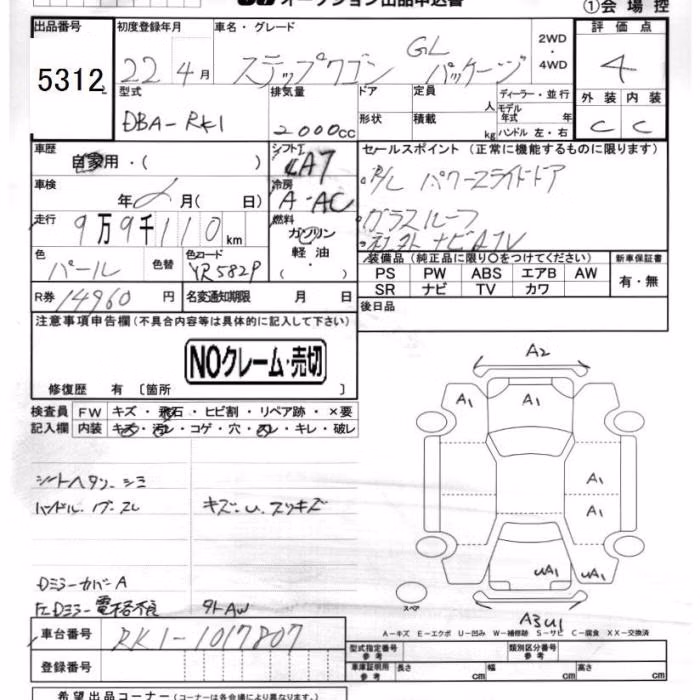 オークション出品申込書
①会場控
出品番号 初度登録年月 車名・グレード 評価点
5312 22 4月 ステップワゴン GL パッケージ 2WD・4WD 4
型式 排気量 ドア 定員 人 ディーラー・並行 外装 内装
DBA-RK1 2000cc 形状 積載 kg モデル年式 年 ハンドル 左・右 C C
車歴 自家用・( ) シフト AT セールスポイント (正常に機能するものに限ります)
車検 年 月( 日) 冷房 A-AC R/L パワースライドドア
走行 9万9千110km 燃料 ガソリン・軽油・( ) ガラスルーフ
ナビATV
色 パール 色替 色コード YR582P 装備品 (純正品に限り○をつけてください) 新車保証書
PS PW ABS エアB AW 有・無
SR ナビ TV カワ
R券 14960円 名変通知期限 月 日 後日品
注意事項申告欄 (不具合内容等は具体的に記入して下さい)
NOクレーム・売切
修復歴 有 〔箇所 〕
検査員 FW キズ・飛石・ヒビ割・リペア跡・×要
記入欄 内装 キズ・汚レ・コゲ・穴・スレ・キレ・破レ
シートヘタリ シミ
ハンドル スレ キズ・U スリキズ
Dミラーカバー A
左Dミラー電格不良 外AW
A2
A1 A1
A1
A1
UA1 UA1
スペア
A3U1
A-キズ E-エクボ U-凹み W-補修跡 S-サビ C-腐食 XX-交換済
車台番号 RK1-1017807 型式指定番号 参考 類別区分番号 参考
登録番号 車両証明用 参考 長さ cm 幅 cm 高さ cm
希望出品コーナー (コーナーは各会場により異なります。)